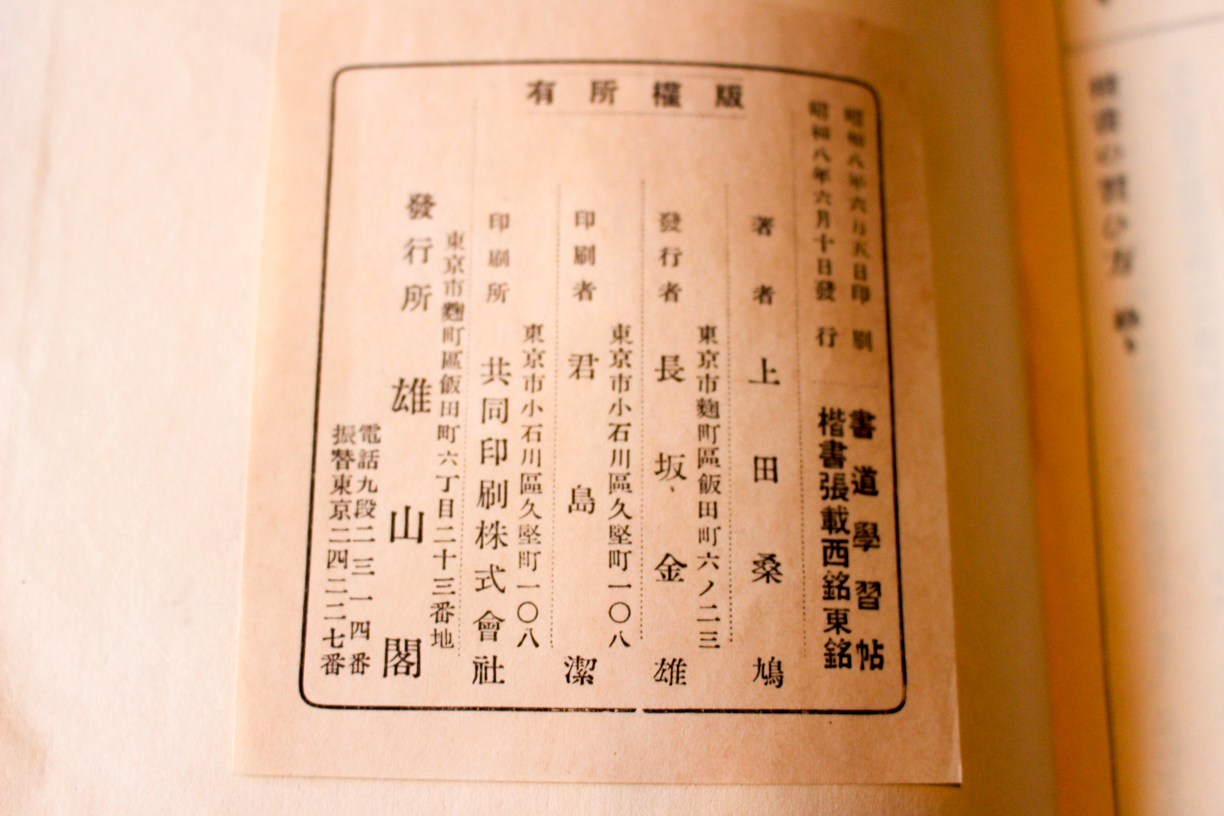 版權所有
昭和八年六月五日印刷
昭和八年六月十日發行
書道學習帖
楷書張載西銘東銘
著者 上田桑鳩
東京市麴町區飯田町六ノ二三
發行者 長坂金雄
東京市小石川區久堅町一〇八
印刷者 君島潔
東京市小石川區久堅町一〇八
印刷所 共同印刷株式會社
東京市麴町區飯田町六丁目二十三番地
發行所 雄山閣
電話九段二三一四番
振替東京二四二二七番